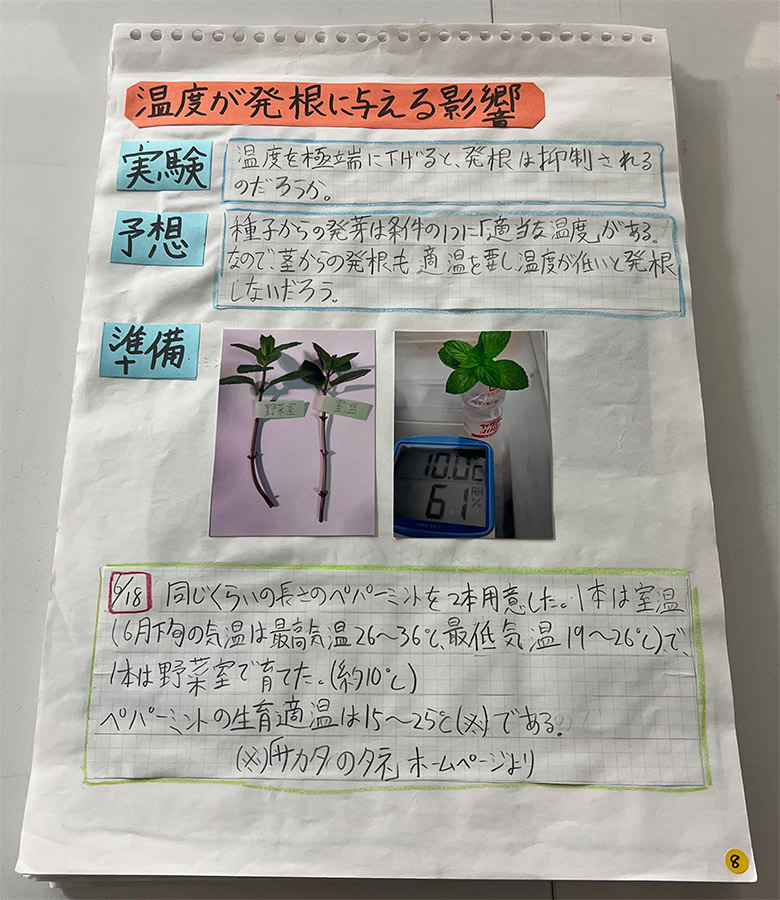 温度が発根に与える影響
実験
温度を極端に下げると、発根は抑制される
のだろうか。
予想
種子からの発芽は条件の1つに「適当な温度」がある。
なので、茎からの発根も適温を要し、温度が低いと発根
しないだろう。
準備
野菜室
室温
10.0℃
61 RH%
6/18 同じくらいの長さのペパーミントを2本用意した。1本は室温
(6月下旬の気温は最高気温26〜36℃、最低気温19〜26℃)で、
1本は野菜室で育てた。(約10℃)
ペパーミントの生育適温は15〜25℃(※)である。
(※)「サカタのタネ」ホームページより
8